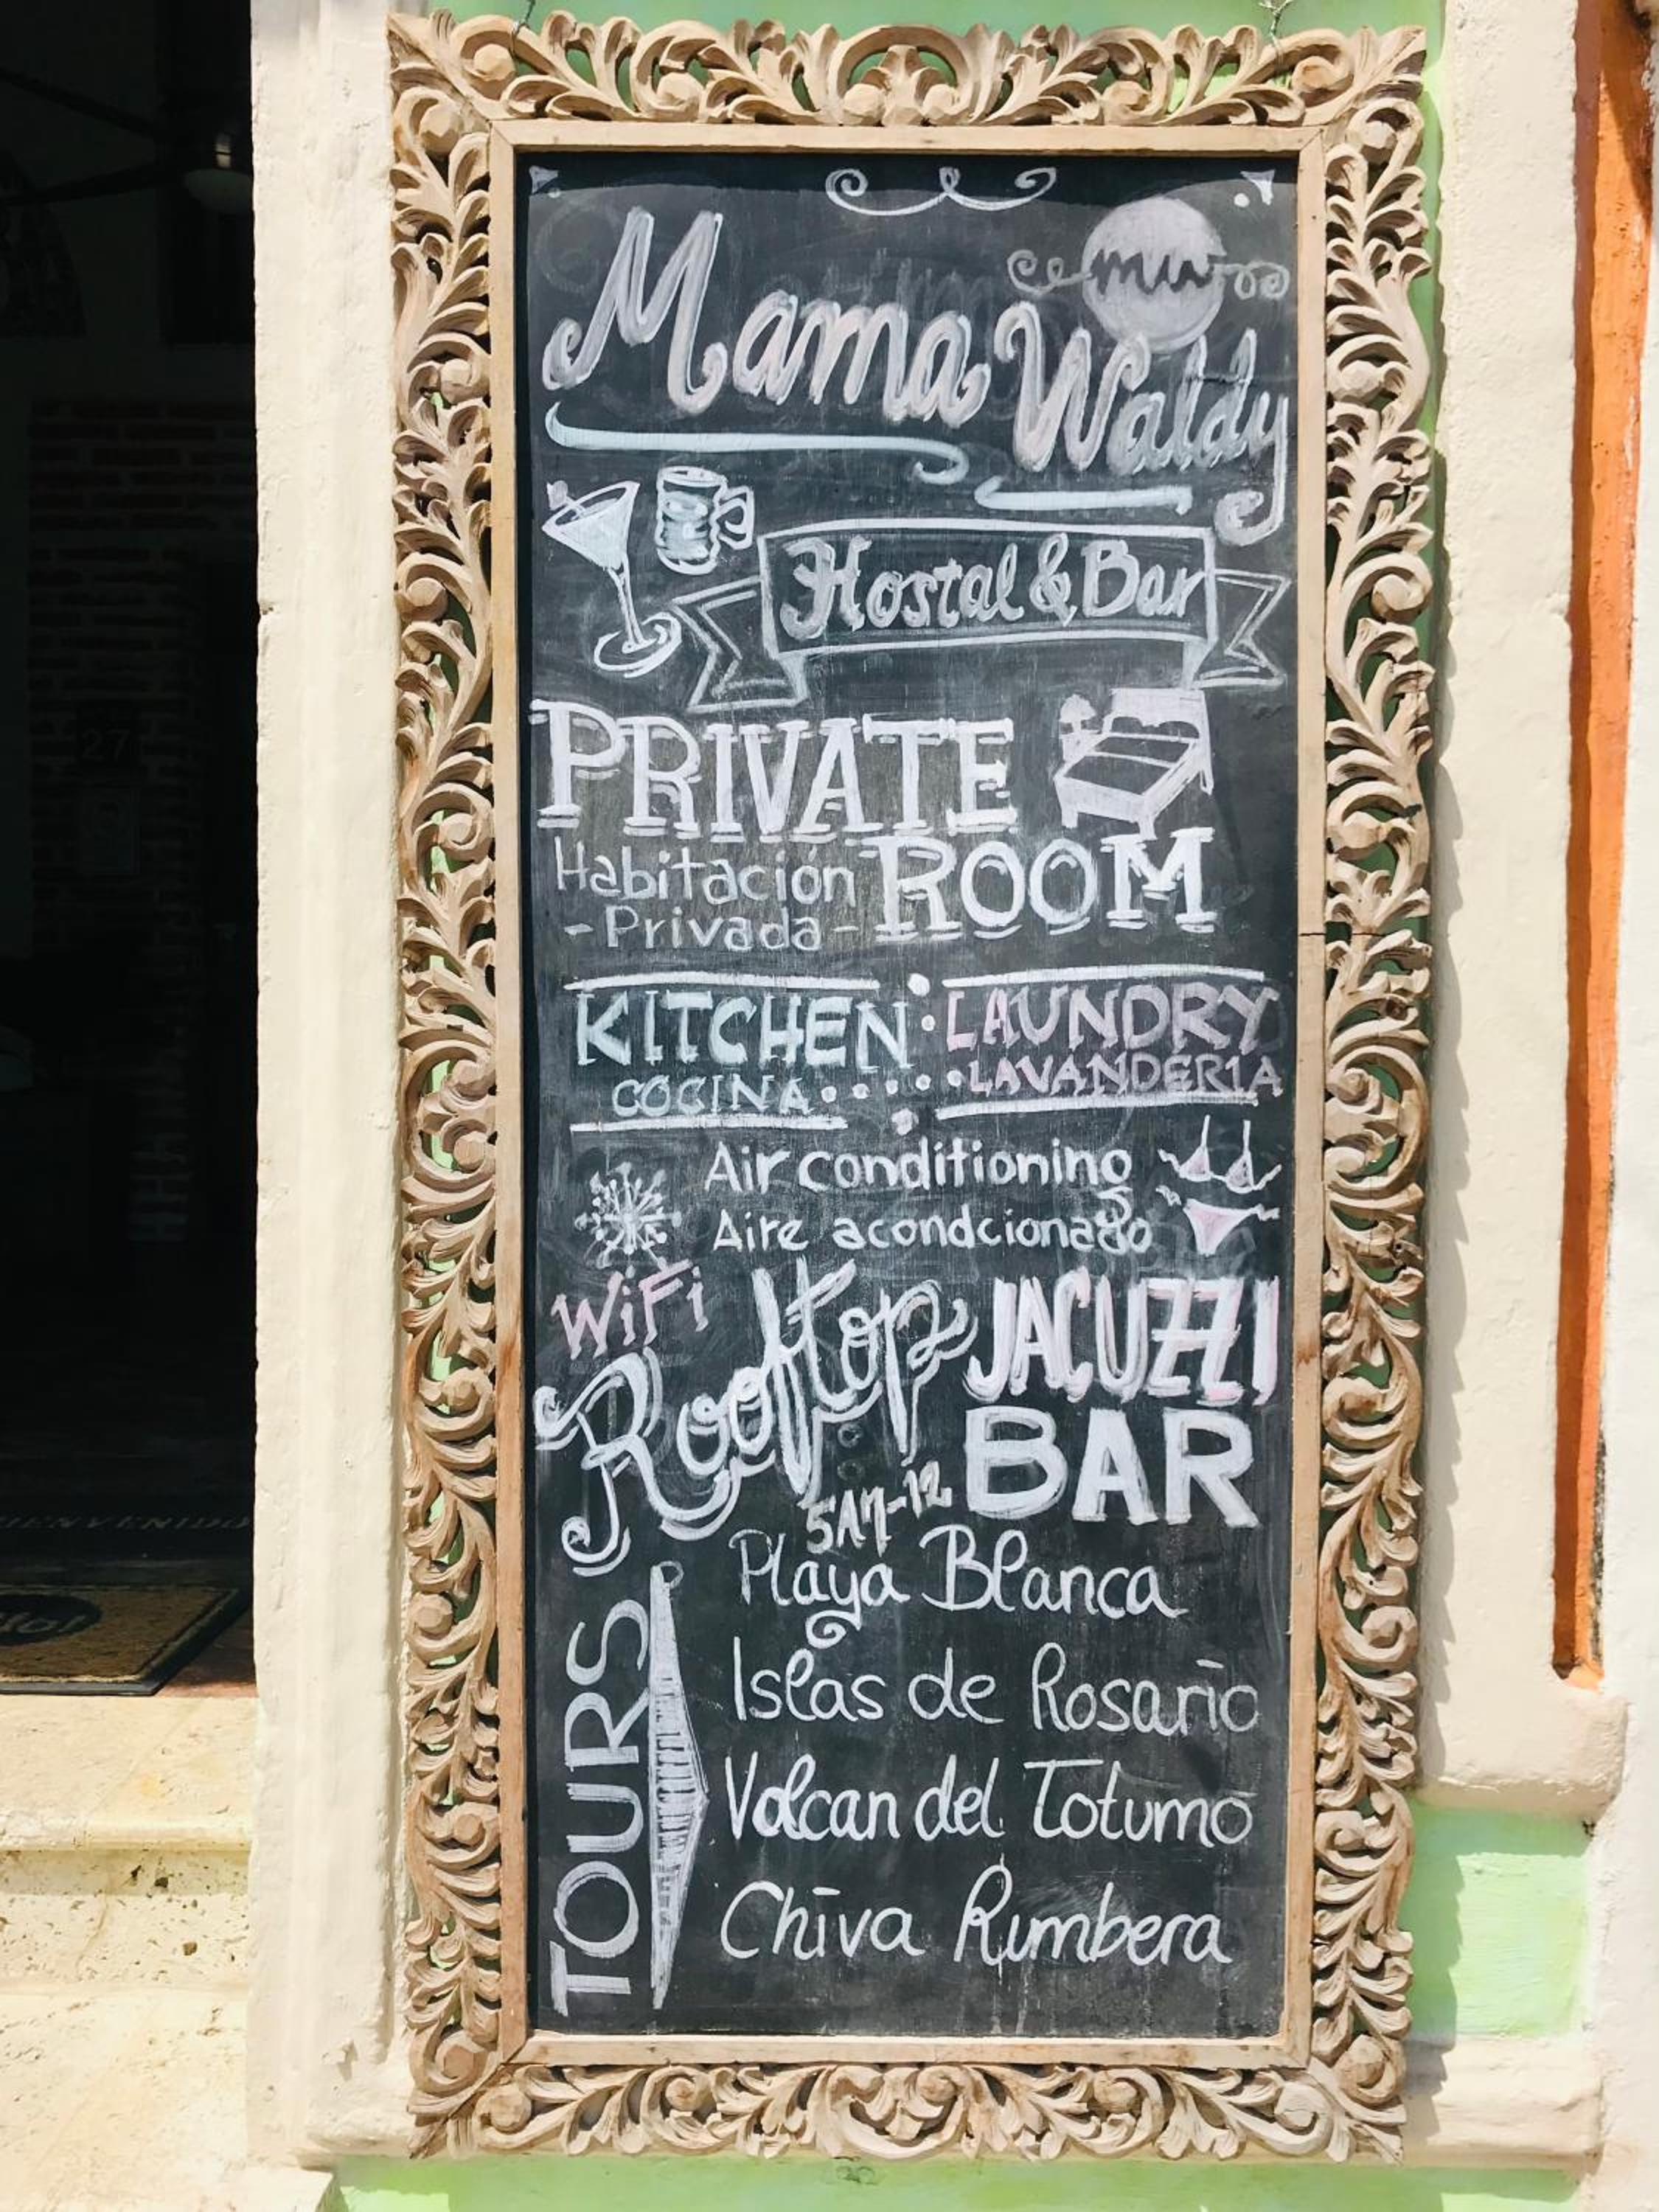 Mama Waldy
Hostal & Bar
PRIVATE
Habitación ROOM
- Privada -
KITCHEN LAUNDRY
COCINA LAVANDERIA
Air conditioning
Aire acondcionado
WiFi
Rooftop JACUZZI
BAR
5AM-12
TOURS
Playa Blanca
Islas de Rosario
Volcan del Totumo
Chiva Rumbera
27
BIENVENIDO